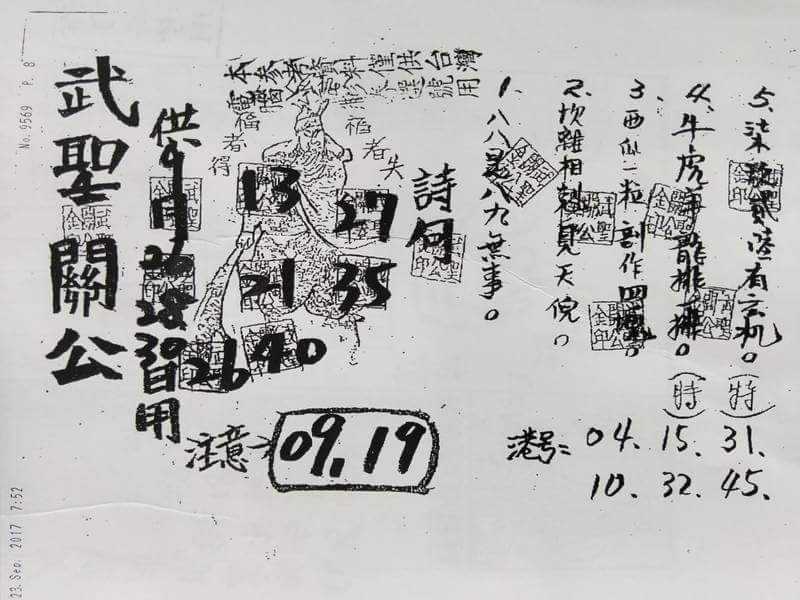 No. 9569 P. 8
23. Sep. 2017 7:52
本參考資料僅供台灣
武聖關公
供9月26 28 30日用
得
者
福
福
者
失
13
27
21
35
26
40
詩句
1. 八八是八九無事。
2. 坎離相剋見天倪。
3. 西瓜一粒剖作四
4. 牛虎羊龍排一排。(特)
5. 柒玖貳陸有玄机。(特)
注意
09, 19
港号:
04. 15. 31.
10. 32. 45.